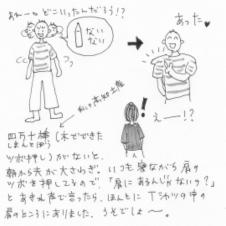 あれ〜っ どこいったんだろう!?
ない
ない
あった♥
私の高知土産
えー!?
四万十棒(木でできた
しまんとぼう
ツボ押し)がないと、
朝から夫が大さわぎ。いつも寝ながら肩の
ツボを押してるので、「肩にあるんじゃない?」
とあきれ声で言ったら、ほんとに Tシャツの中の
肩のところにありました。うそでしょ〜。